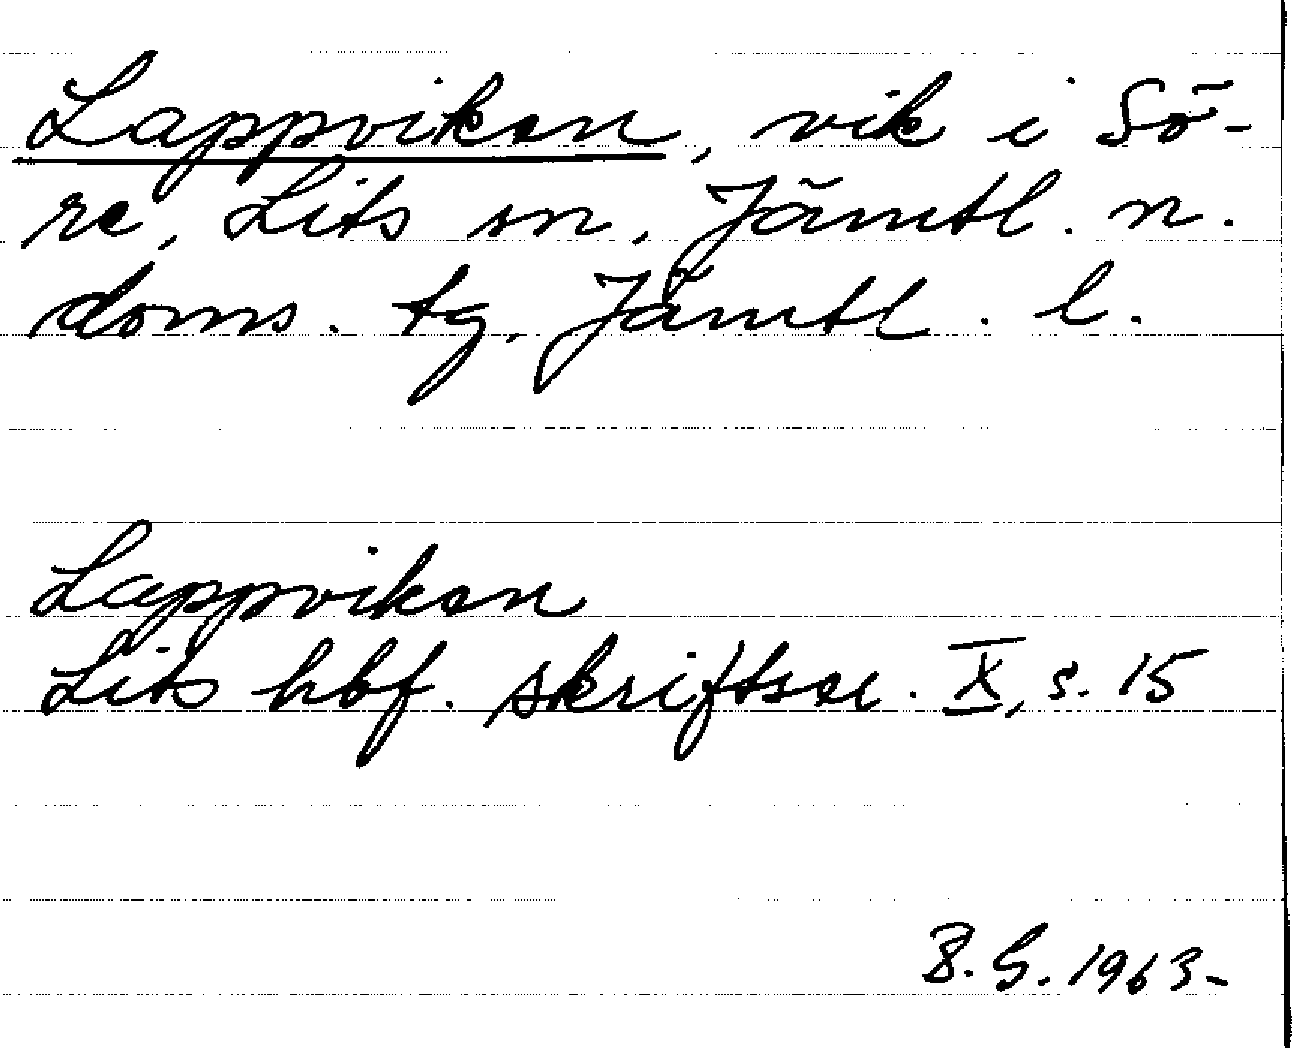 Lappviken, vik i Sö-
re, Lits sn, Jämtl. n.
doms. tg, Jämtl. l.
Lappviken
Lits hbf. skriftser. X, s. 15
B. G. 1963-